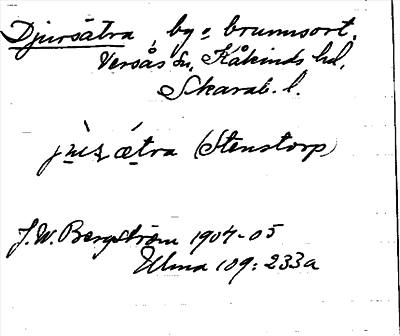 Djursätra, by o. brunnsort.
Versås sn, Kåkinds hd,
Skarab. l.
jùs ǽtra (Stenstorp)
J.W. Bergström 1904-05
Ulma 109: 233a